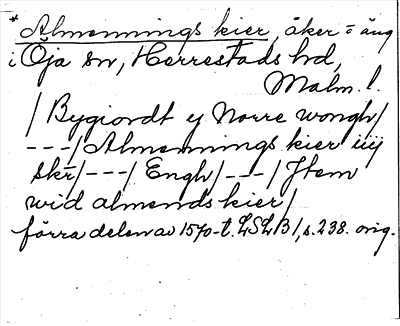 *Almennings kier, åker = äng
i Öja sn, Herrestads hd,
Malm. l.
/ Bygiordt y Norre wongh/
---/Almennings kier iiij
skr̄/---/ Engh/---/Jtem
wid almends kier/
förra delen av 1570-t. LSLB 1, s. 238. orig.